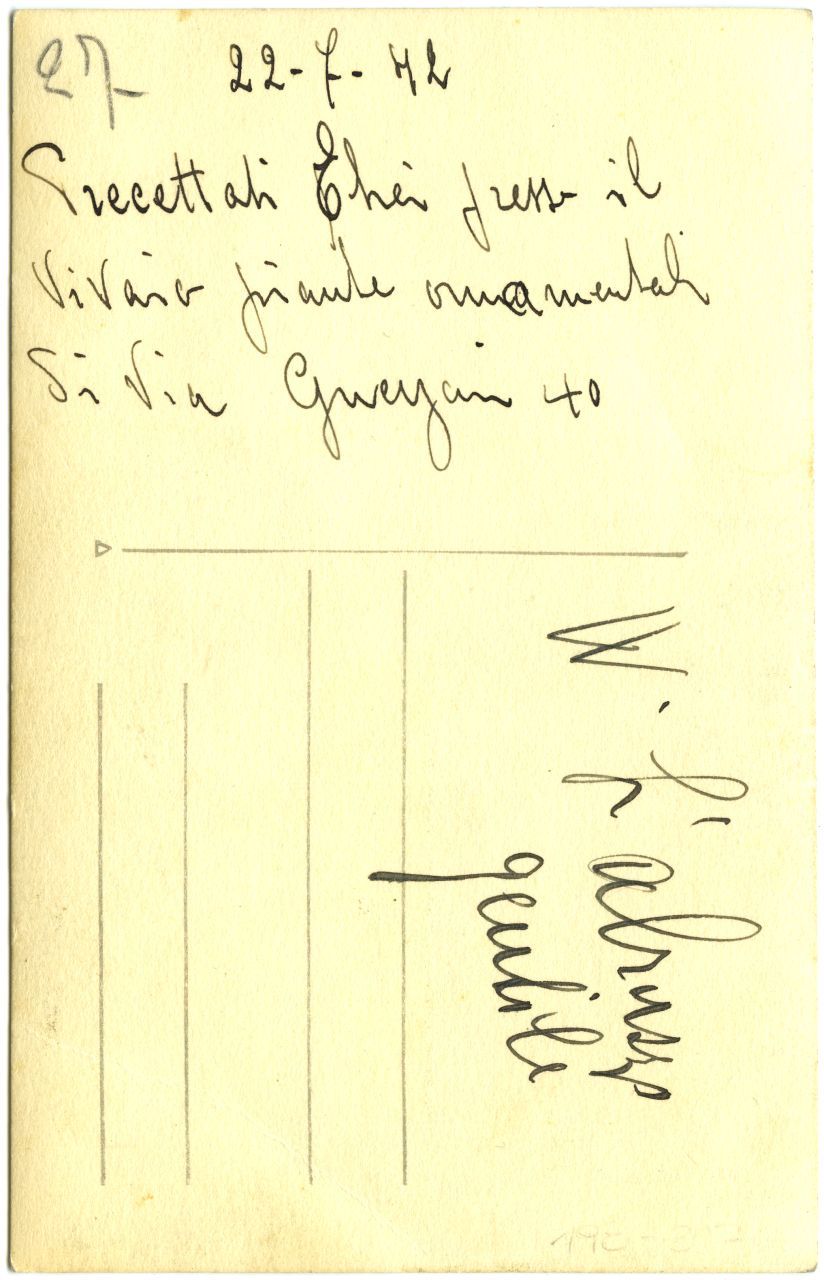 27
22-7-42
Precettati Ebrei presso il
Vivaio piante ornamentali
di Via Guerzoni 40
W. L'abruzzo
gentile